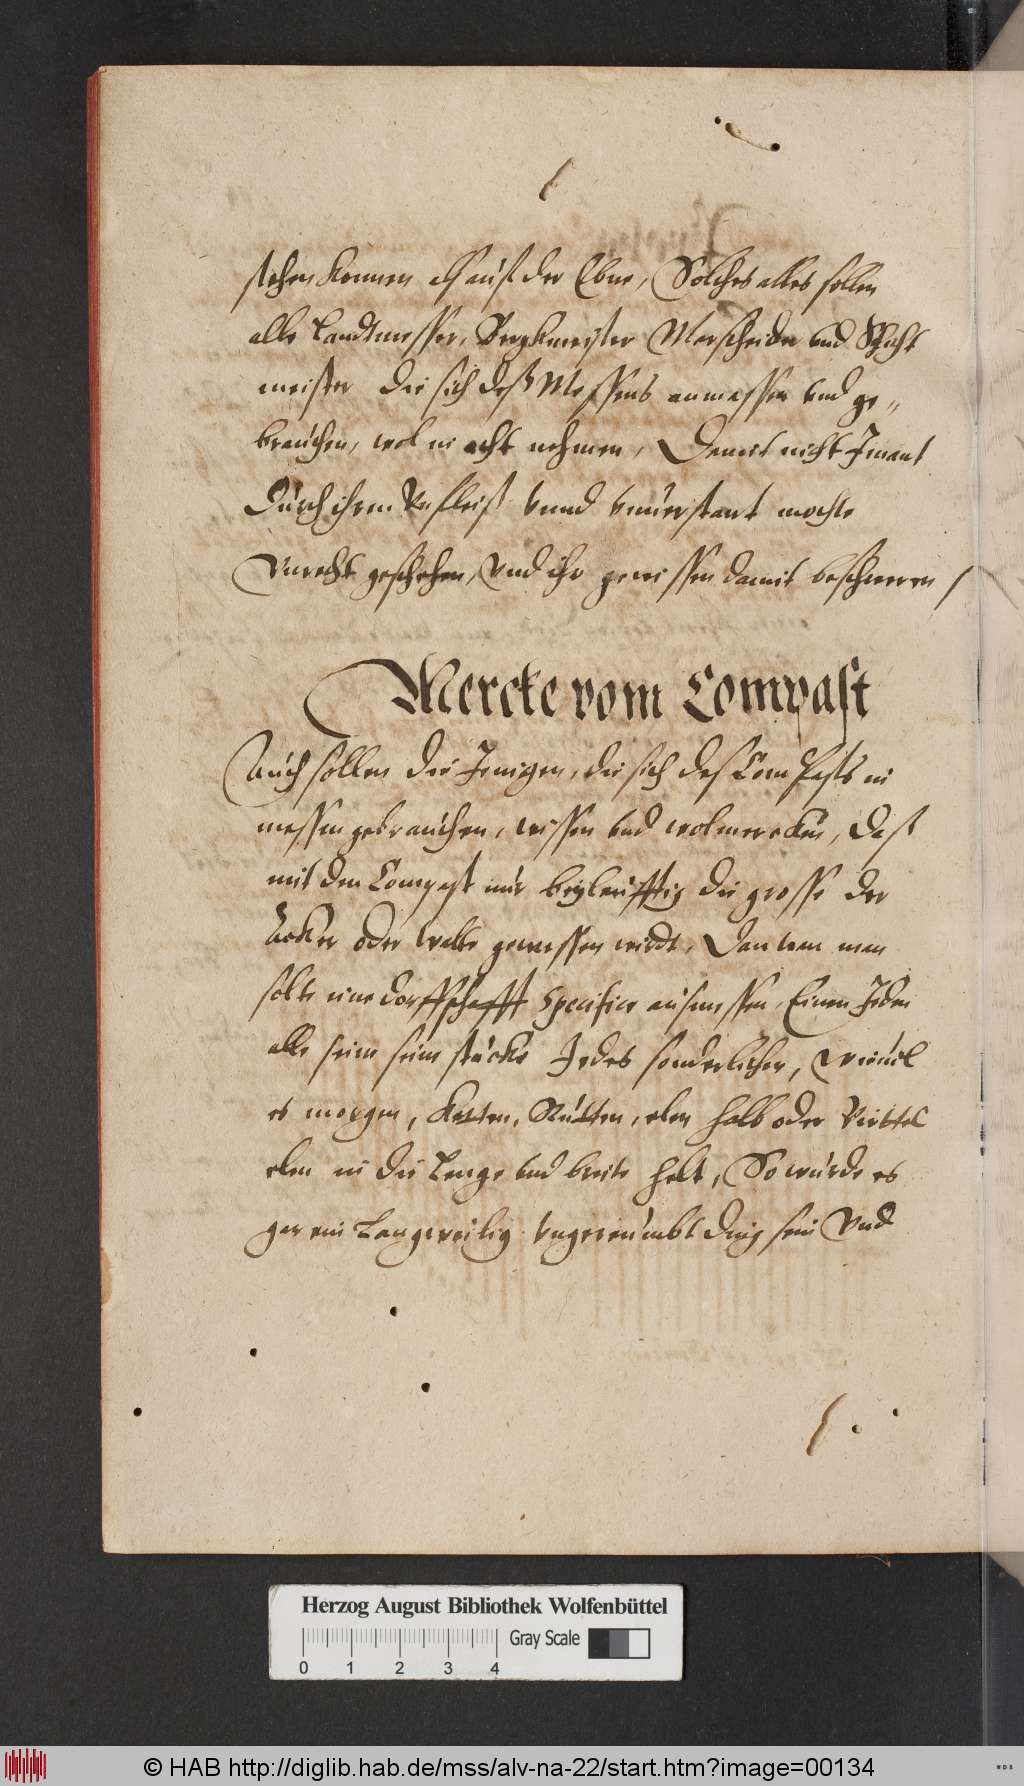 stehen konnen als auß der Ebne, Solches alles sollen
alle Landtmesser, Bergkmeister Marscheider und Schicht
meister die sich deß Messens anmassen und ge„
brauchen, wol in acht nehmen, Damit nicht Jmant
durch ihren Unfleiß unnd unuerstant mochte
Unrecht geschehen, und ihr gewissen damit beschweren /
Mercke vom Compast
Auch sollen die Jenigen, die sich des Compasts in
messen gebrauchen, wissen und wol mercken, daß
mit den Compast nur beyleufftig die grosse der
Äcker oder Welde gemessen wirdt, Dan wan man
solte eine dorffschafft Specifice ausmessen, Einem Jeden
alle seine stücke Jedes sonderlichen, wieuil
es morgen, Ketten, Rutten, elen halb oder Virttel
elen in die Lenge und breite helt, So wurde es
gar ein Langweilig ungereumbt ding sein Und
Herzog August Bibliothek Wolfenbüttel
Gray Scale
0 1 2 3 4
© HAB http://diglib.hab.de/mss/alv-na-22/start.htm?image=00134